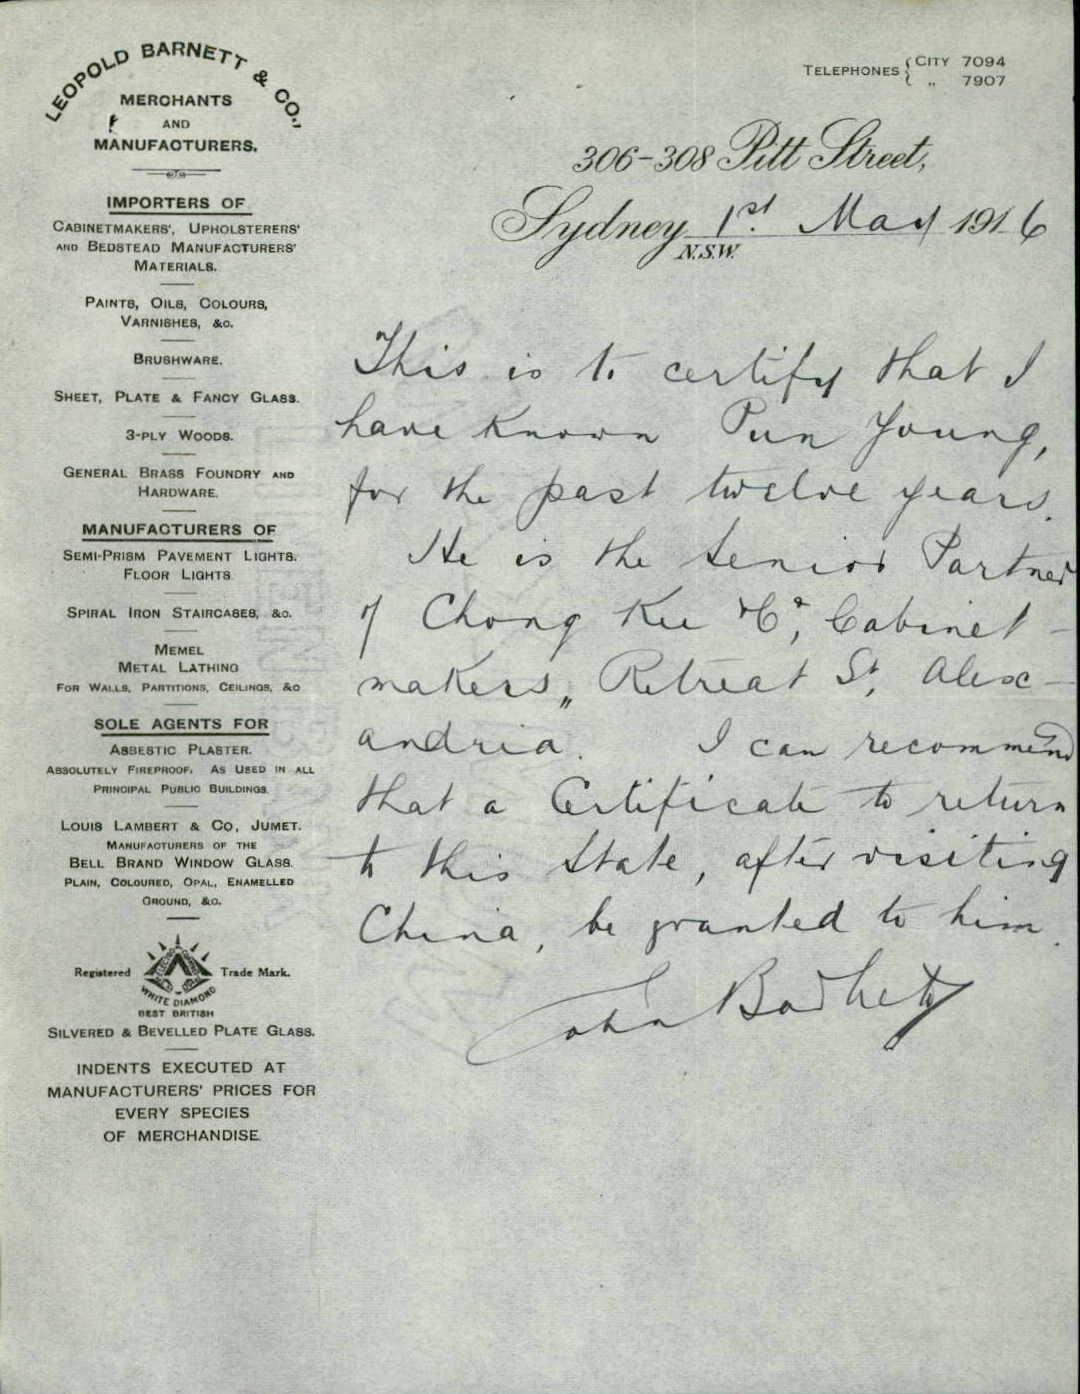 LEOPOLD BARNETT & CO.,
MERCHANTS
AND
MANUFACTURERS.
IMPORTERS OF
CABINETMAKERS', UPHOLSTERERS'
AND BEDSTEAD MANUFACTURERS'
MATERIALS.
PAINTS, OILS, COLOURS,
VARNISHES, &c.
BRUSHWARE.
SHEET, PLATE & FANCY GLASS.
3-PLY WOODS.
GENERAL BRASS FOUNDRY AND
HARDWARE.
MANUFACTURERS OF
SEMI-PRISM PAVEMENT LIGHTS.
FLOOR LIGHTS
SPIRAL IRON STAIRCASES, &c.
MEMEL
METAL LATHING
FOR WALLS, PARTITIONS, CEILINGS, &c
SOLE AGENTS FOR
ASBESTIC PLASTER.
ABSOLUTELY FIREPROOF. AS USED IN ALL
PRINCIPAL PUBLIC BUILDINGS.
LOUIS LAMBERT & CO, JUMET.
MANUFACTURERS OF THE
BELL BRAND WINDOW GLASS.
PLAIN, COLOURED, OPAL, ENAMELLED
GROUND, &c.
Registered Trade Mark.
WHITE DIAMOND
BEST BRITISH
SILVERED & BEVELLED PLATE GLASS.
INDENTS EXECUTED AT
MANUFACTURERS' PRICES FOR
EVERY SPECIES
OF MERCHANDISE.
TELEPHONES { CITY 7094
„ 7907
306-308 Pitt Street,
Sydney 1st. May 1916
N.S.W.
This is to certify that I
have known Pun Young,
for the past twelve years.
He is the senior Partner
of Chong Kee & Co, Cabinet-
makers,, Retreat St, Alex-
andria. I can recommend
that a Certificate to return
to this State, after visiting
China, be granted to him.
John